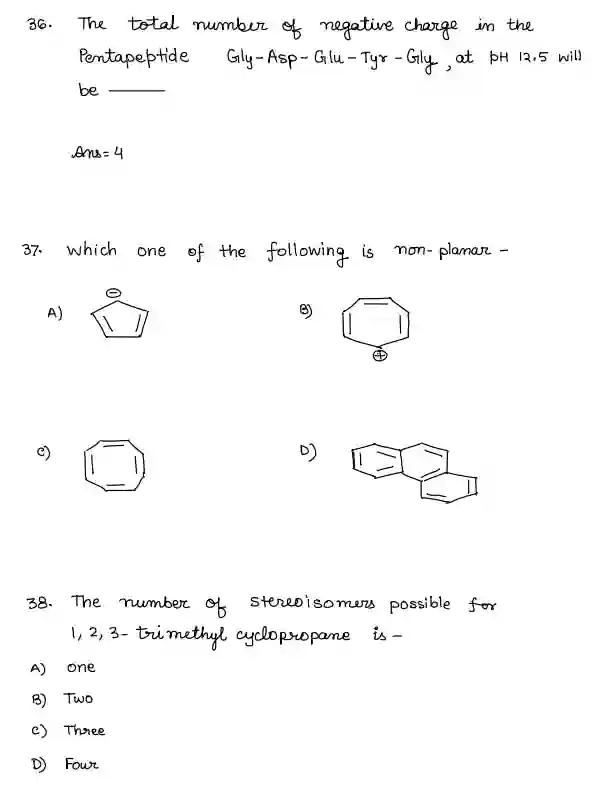 36. The total number of negative charge in the
Pentapeptide Gly-Asp-Glu-Tyr-Gly, at pH 12.5 will
be ———
Ans=4
37. Which one of the following is non-planar -
A)
⊖
B)
⊕
C)
D)
38. The number of stereoisomers possible for
1, 2, 3- trimethyl cyclopropane is -
A) one
B) Two
C) Three
D) Four